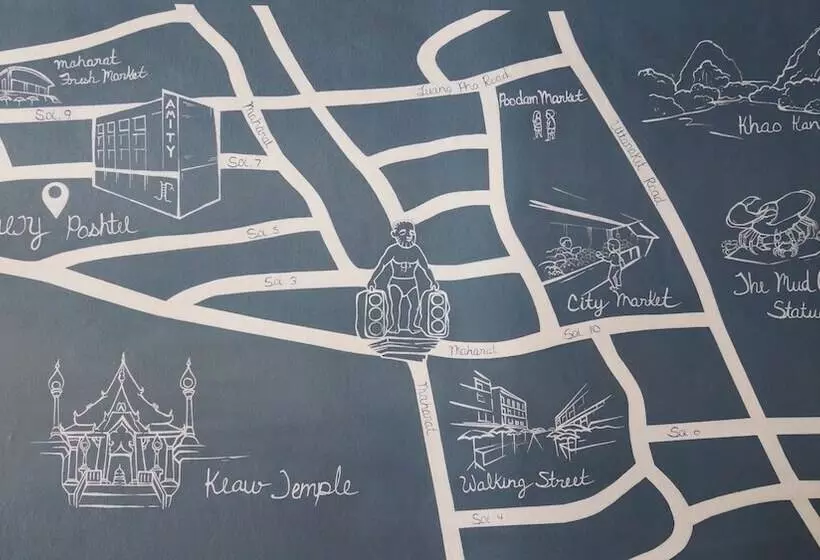 Maharat
Fresh Market
Soi. 9
AMITY
Maharat
Soi. 7
Poshtel
Soi. 5
Soi. 3
Luang Pho Road
Poodam Market
Uttarakit Road
Khao
City Market
The Mud
Soi. 10
Maharat
Maharat
Walking Street
Soi. 6
Soi. 4
Keaw Temple